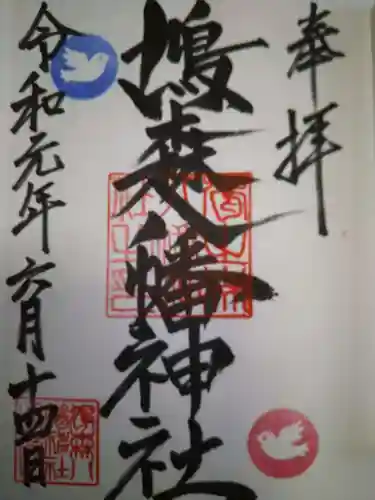 奉拝
鳩森八幡神社
令和元年六月十四日